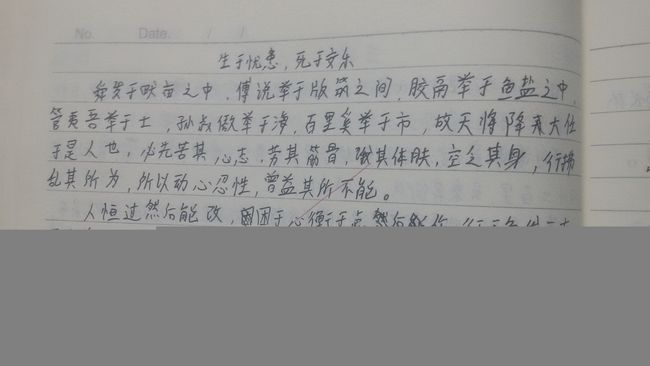 No. Date. / /
生于忧患，死于安乐
舜发于畎亩之中，傅说举于版筑之间，胶鬲举于鱼盐之中，
管夷吾举于士，孙叔敖举于海，百里奚举于市，故天将降大任
于是人也，必先苦其心志，劳其筋骨，饿其体肤，空乏其身，行拂
乱其所为，所以动心忍性，曾益其所不能。
人恒过然后能改，困于心衡于虑